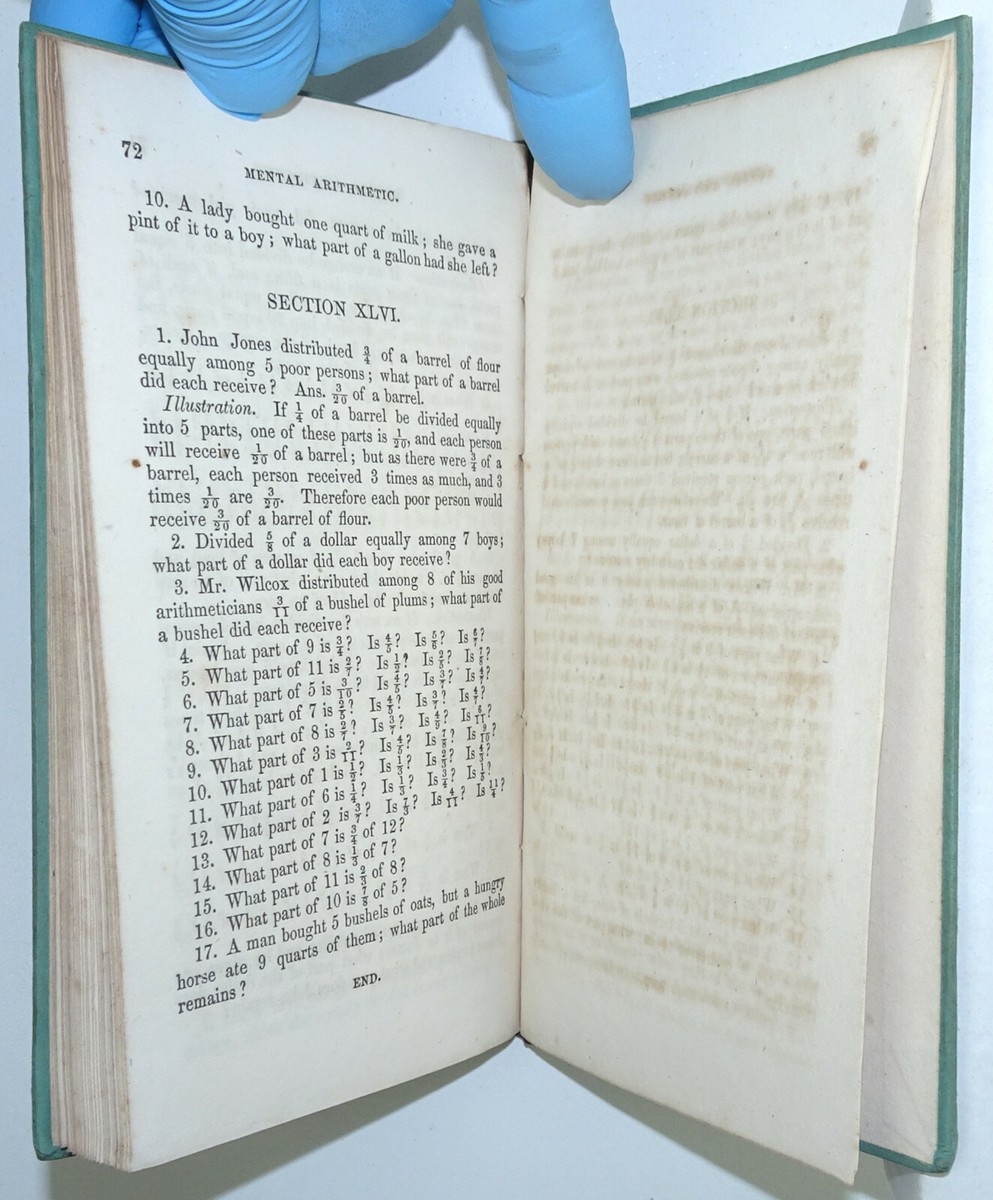 72
MENTAL ARITHMETIC.
10. A lady bought one quart of milk; she gave a
pint of it to a boy; what part of a gallon had she left?
SECTION XLVI.
1. John Jones distributed 3/4 of a barrel of flour
equally among 5 poor persons; what part of a barrel
did each receive? Ans. 3/20 of a barrel.
Illustration. If 1/4 of a barrel be divided equally
into 5 parts, one of these parts is 1/20, and each person
will receive 1/20 of a barrel; but as there were 3/4 of a
barrel, each person received 3 times as much, and 3
times 1/20 are 3/20. Therefore each poor person would
receive 3/20 of a barrel of flour.
2. Divided 5/8 of a dollar equally among 7 boys;
what part of a dollar did each boy receive?
3. Mr. Wilcox distributed among 8 of his good
arithmeticians 3/11 of a bushel of plums; what part of
a bushel did each receive?
4. What part of 9 is 3/4? Is 4/5? Is 5/6? Is 6/7?
5. What part of 11 is 2/7? Is 1/2? Is 2/5? Is 7/8?
6. What part of 5 is 3/10? Is 4/5? Is 3/7? Is 4/7?
7. What part of 7 is 2/5? Is 4/5? Is 3/7? Is 4/7?
8. What part of 8 is 2/7? Is 3/7? Is 4/9? Is 6/11?
9. What part of 3 is 2/11? Is 4/5? Is 7/8? Is 9/10?
10. What part of 1 is 1/2? Is 1/3? Is 2/3? Is 4/3?
11. What part of 6 is 1/4? Is 1/3? Is 3/4? Is 1/5?
12. What part of 2 is 3/7? Is 7/3? Is 4/11? Is 11/4?
13. What part of 7 is 3/4 of 12?
14. What part of 8 is 1/3 of 7?
15. What part of 11 is 2/3 of 8?
16. What part of 10 is 7/8 of 5?
17. A man bought 5 bushels of oats, but a hungry
horse ate 9 quarts of them; what part of the whole
remains?
END.